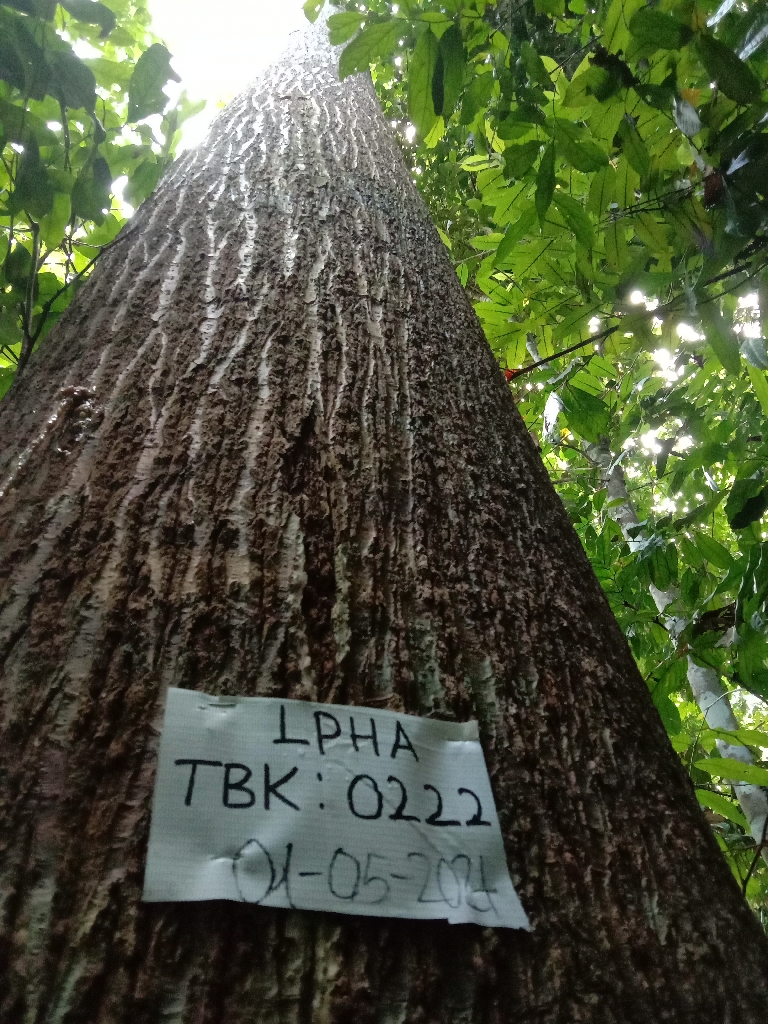 LPHA
TBK: 0222
01-05-2024